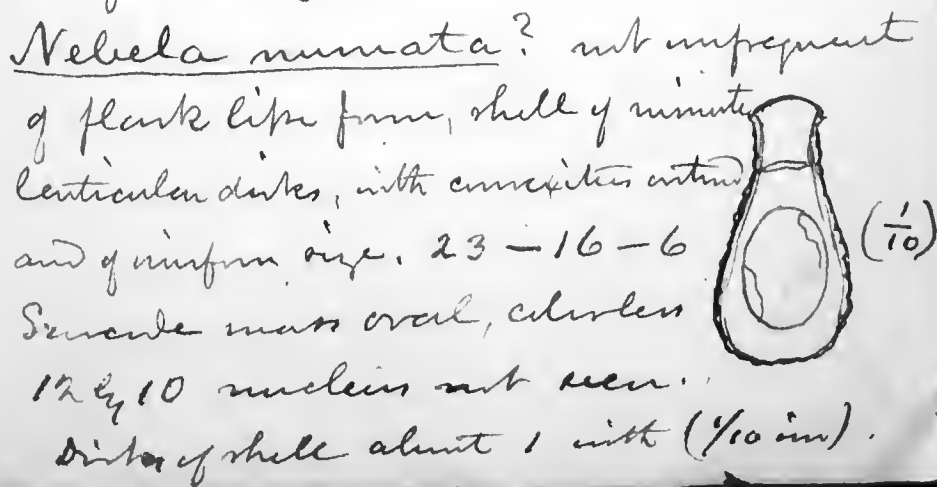 Nebela numata? not unfrequent
of flask like form, shell of minute
lenticular disks, with convexities outward
and of uniform size. 23 – 16 – 6
(1/10)
Sarcode mass oval, colorless
12 by 10 nucleus not seen.
Disks of shell about 1 with (1/10 in).